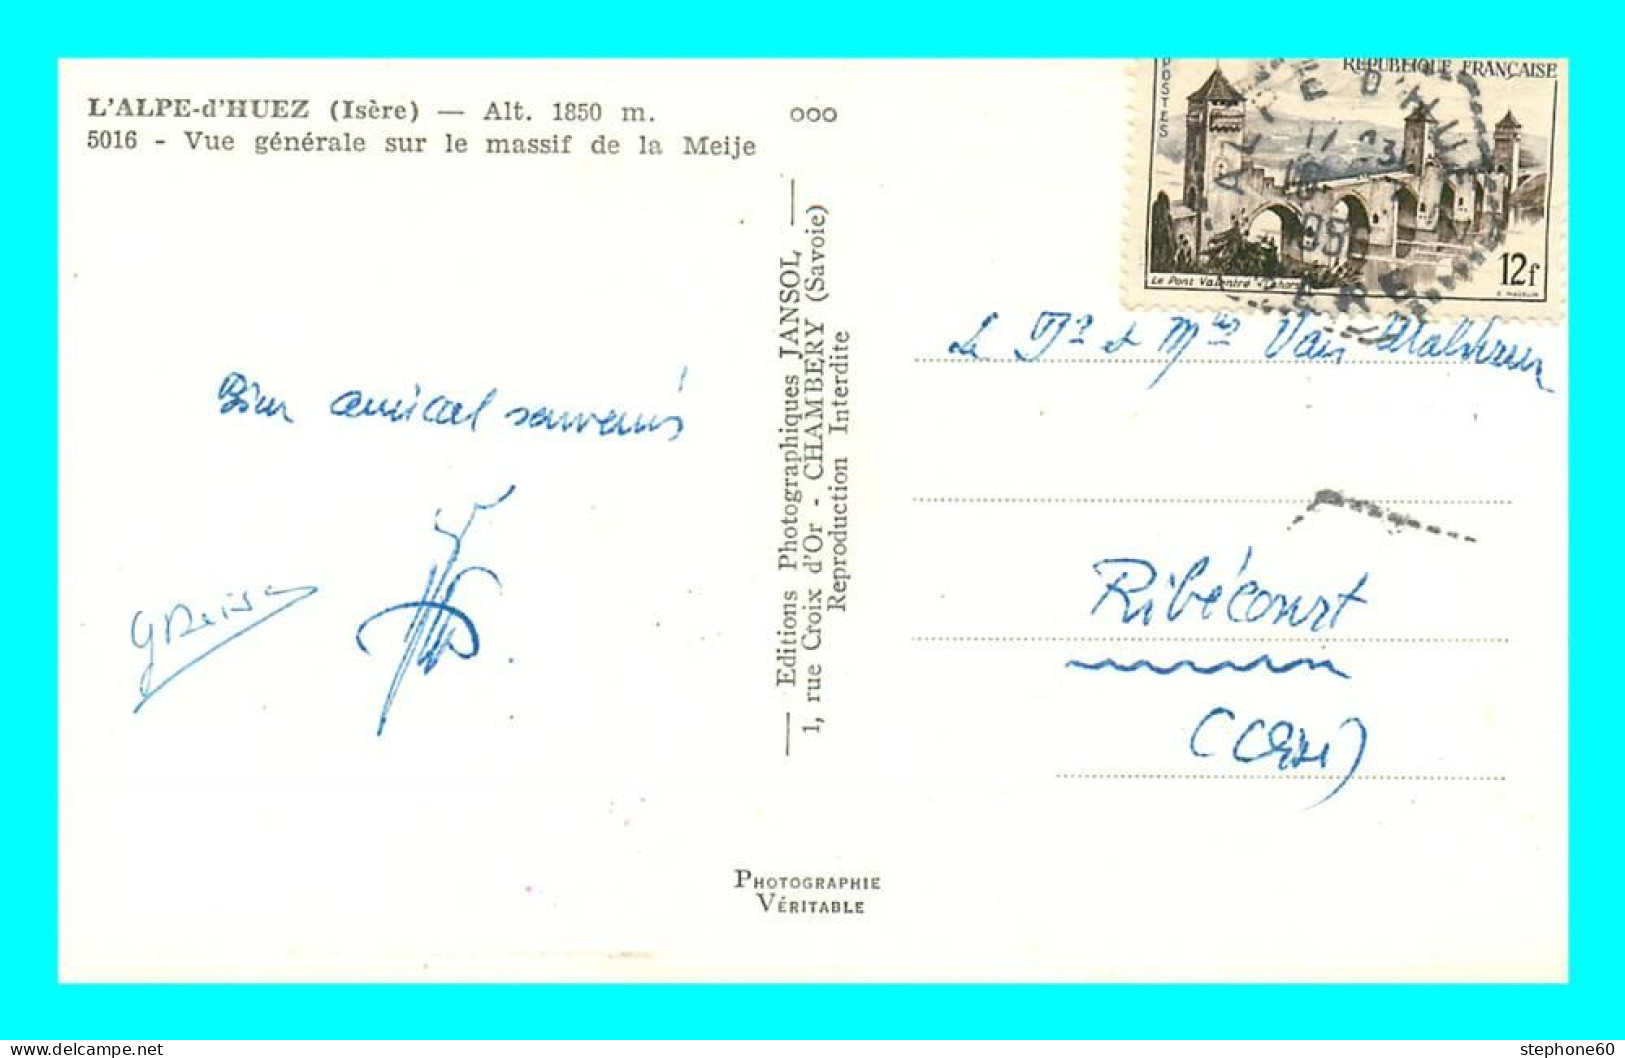 L'ALPE-d'HUEZ (Isère) — Alt. 1850 m.
5016 - Vue générale sur le massif de la Meije
ooo
POSTES
REPUBLIQUE FRANÇAISE
ALPE D'HUEZ
Le Pont Valentré - Cahors
12f
Le Dr et Mme Van
Bien amical souvenir
— Editions Photographiques JANSOL —
1, rue Croix d'Or - CHAMBERY (Savoie)
Reproduction Interdite
Ribécourt
(Oise)
PHOTOGRAPHIE
VÉRITABLE
www.delcampe.net
stephone60